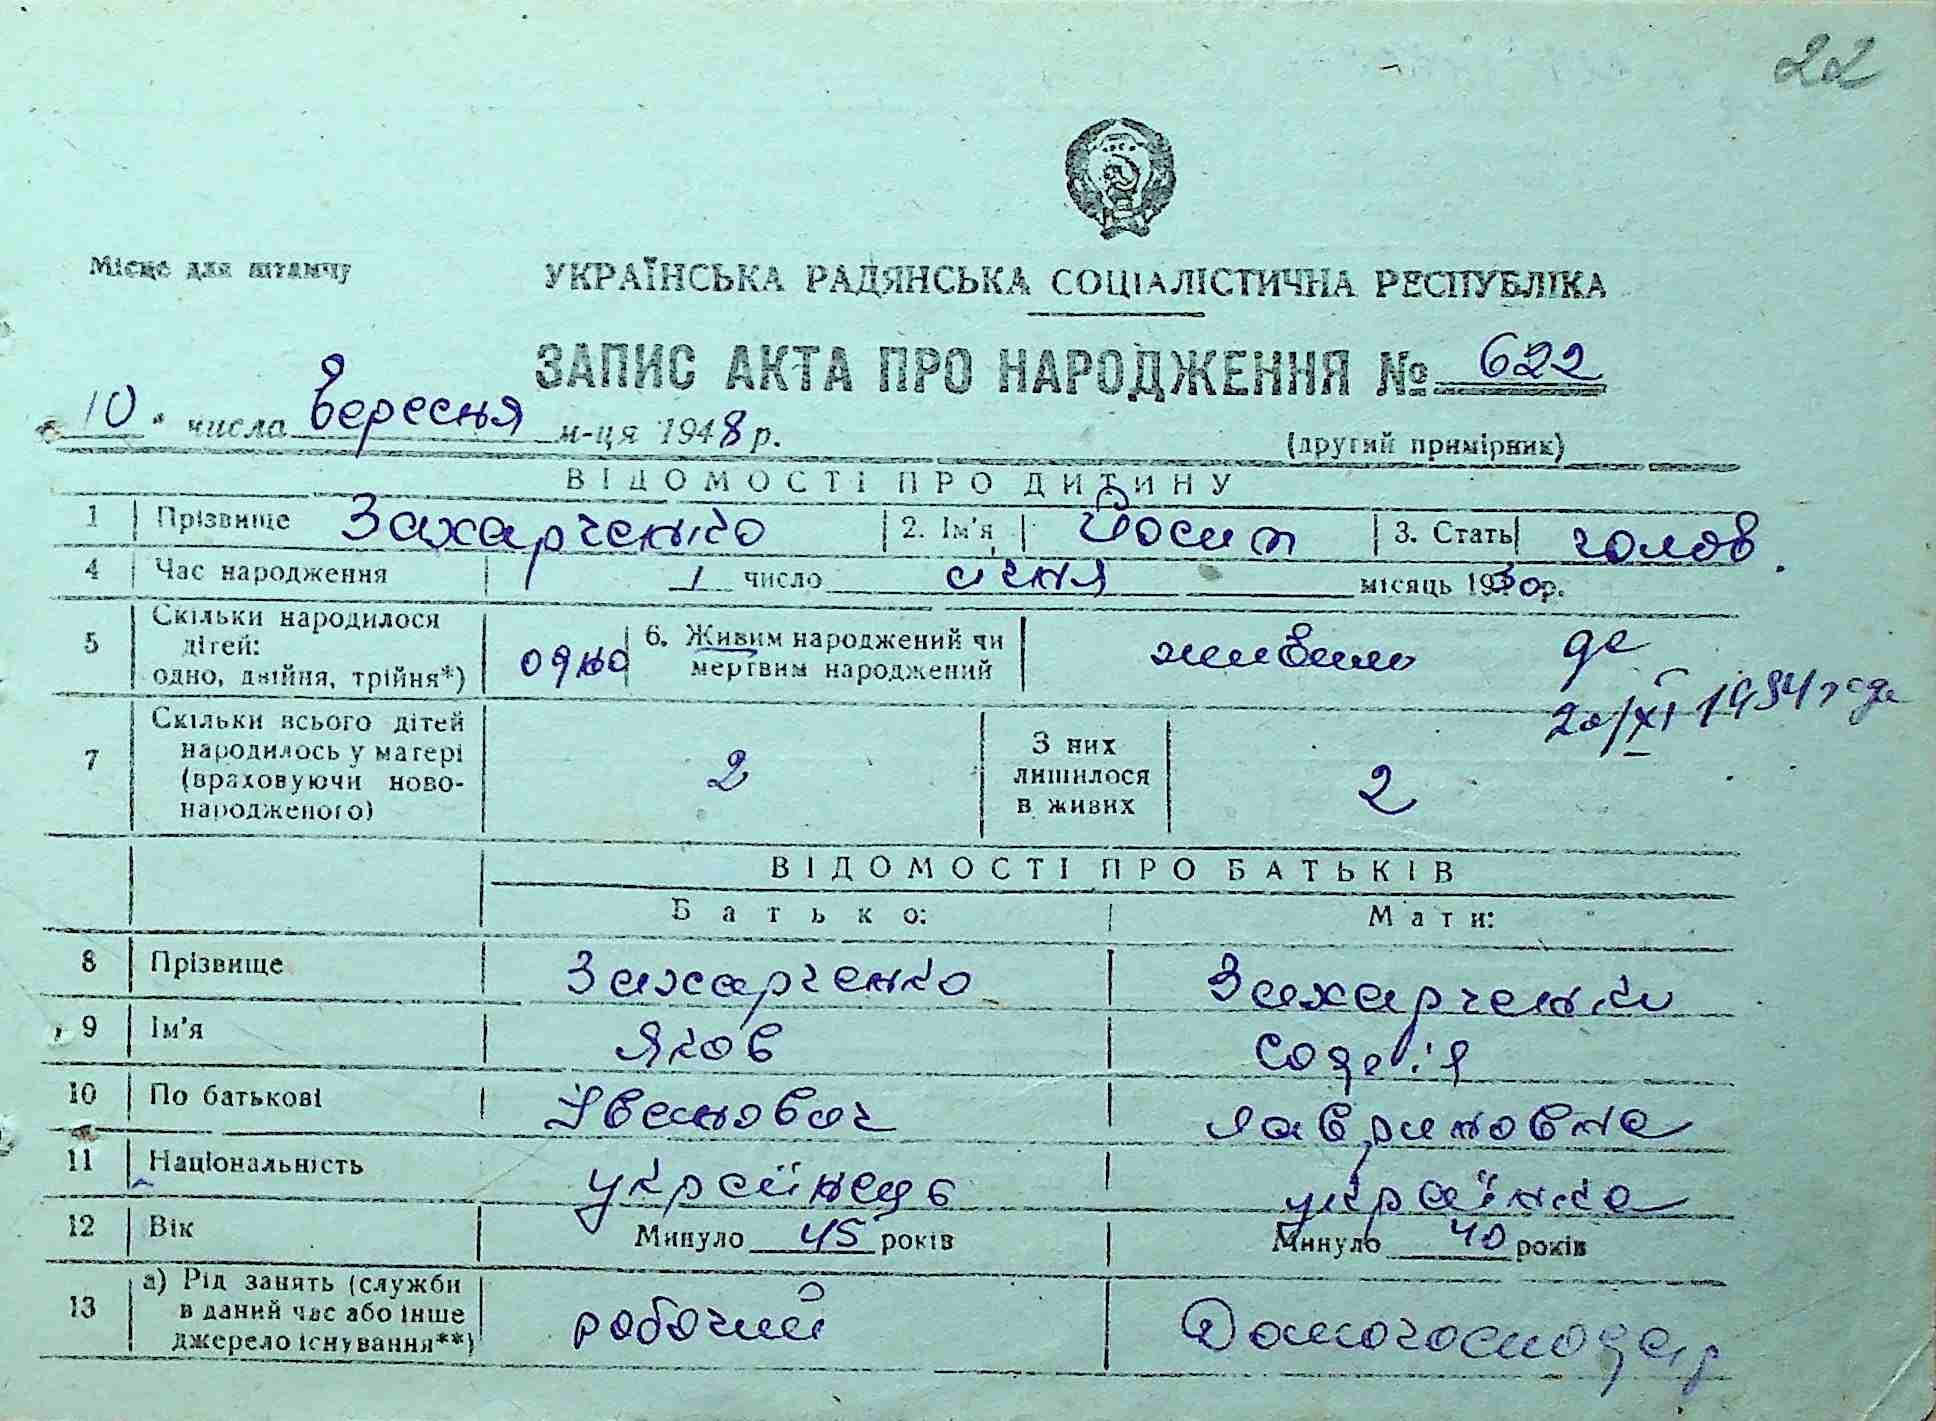 22
Місце для штампу
УКРАЇНСЬКА РАДЯНСЬКА СОЦІАЛІСТИЧНА РЕСПУБЛІКА
ЗАПИС АКТА ПРО НАРОДЖЕННЯ № 622
„10" числа вересня м-ця 1948 р.
(другий примірник)
ВІДОМОСТІ ПРО ДИТИНУ
1 Прізвище Захарченко 2. Ім'я Йосип 3. Стать чолов.
4 Час народження 1 число січня місяць 1930р.
5 Скільки народилося дітей: одно, двійня, трійня*) одно 6. Живим народжений чи мертвим народжений живим
20/XI 1934 года
7 Скільки всього дітей народилось у матері (враховуючи новонародженого) 2 З них лишилося в живих 2
ВІДОМОСТІ ПРО БАТЬКІВ
Батько: Мати:
8 Прізвище Захарченко Захарченко
9 Ім'я Яков
10 По батькові Лавриновна
11 Національність українець українка
12 Вік Минуло 45 років Минуло 40 років
13 а) Рід занять (служби в даний час або інше джерело існування**) рабочий Домогосподар